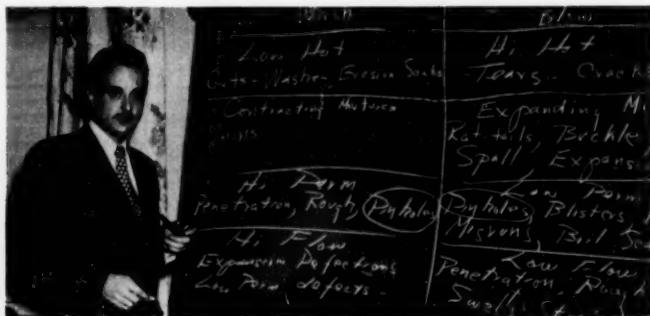 Blow
Low Hot
Cuts - Washes, Erosion Scabs
Contracting Mixtures
Hi Perm
Penetration, Rough, Pinholes
Hi Flow
Expansion Defections
Low Perm defects
Hi Hot
Tears - Crack
Expanding Mi
Rat-tails, Buckle
Spall Expans
Low Perm
Pinholes, Blisters
Misruns, Boil
Low Flow
Penetration, Rough
Swells